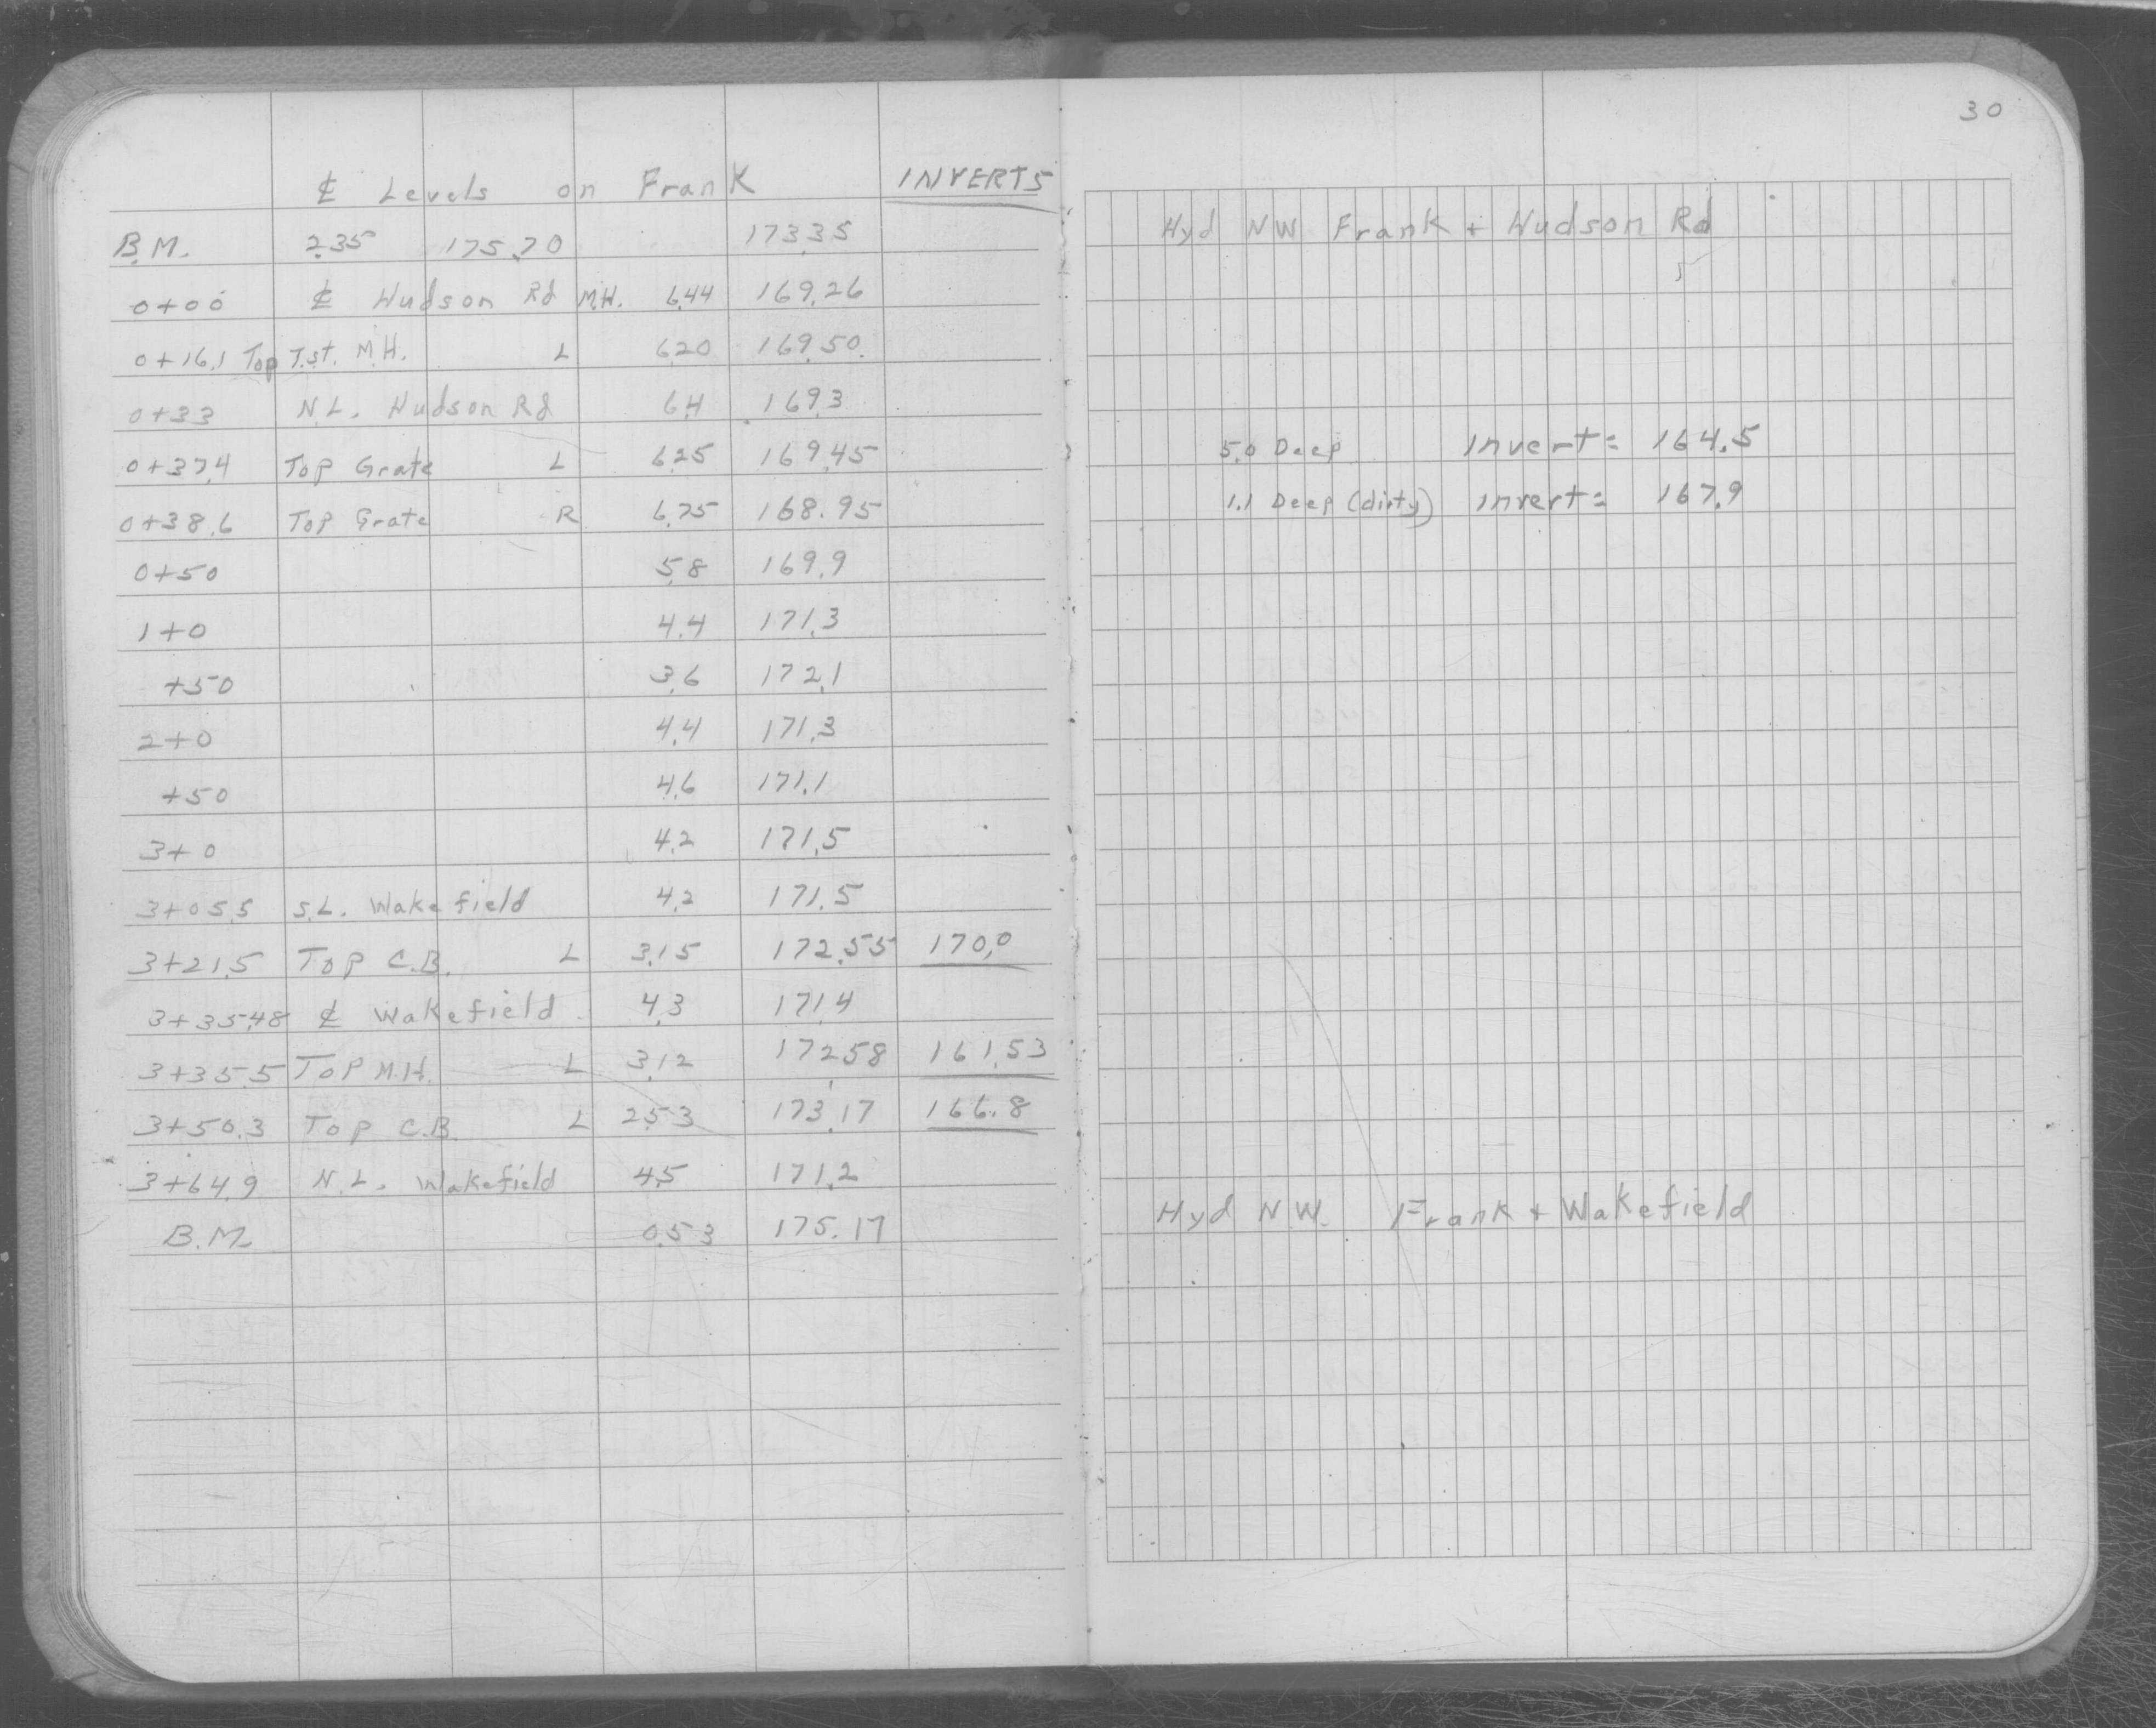 30
₵ Levels on Frank INVERTS
B.M. 2.35 175.70 173.35 Hyd NW Frank + Hudson Rd
0+00 ₵ Hudson Rd M.H. 6.44 169.26
0+16.1 Top T.st. M.H. L 6.20 169.50
0+33 N.L. Hudson Rd 6.4 169.3
0+37.4 Top Grate L 6.25 169.45 5.0 Deep Invert= 164.5
0+38.6 Top Grate R 6.75 168.95 1.1 Deep (dirty) Invert= 167.9
0+50 5.8 169.9
1+0 4.4 171.3
+50 3.6 172.1
2+0 4.4 171.3
+50 4.6 171.1
3+0 4.2 171.5
3+05.5 S.L. Wakefield 4.2 171.5
3+21.5 Top C.B. L 3.15 172.55 170.0
3+35.48 ₵ Wakefield 4.3 171.4
3+35.5 Top M.H. L 3.12 172.58 161.53
3+50.3 Top C.B. L 2.53 173.17 166.8
3+64.9 N.L. Wakefield 4.5 171.2
B.M. 0.53 175.17 Hyd N.W. Frank + Wakefield